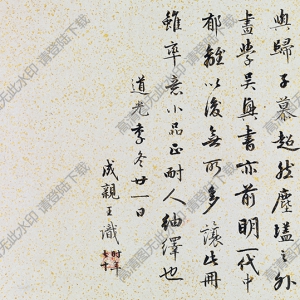 與歸子慕超然塵壒之外
畫學吳興書亦前明一代中
郁離以後無所多讓此冊
雖率意小品正耐人紬繹也
道光季冬廿一日
成親王識
時年
七十